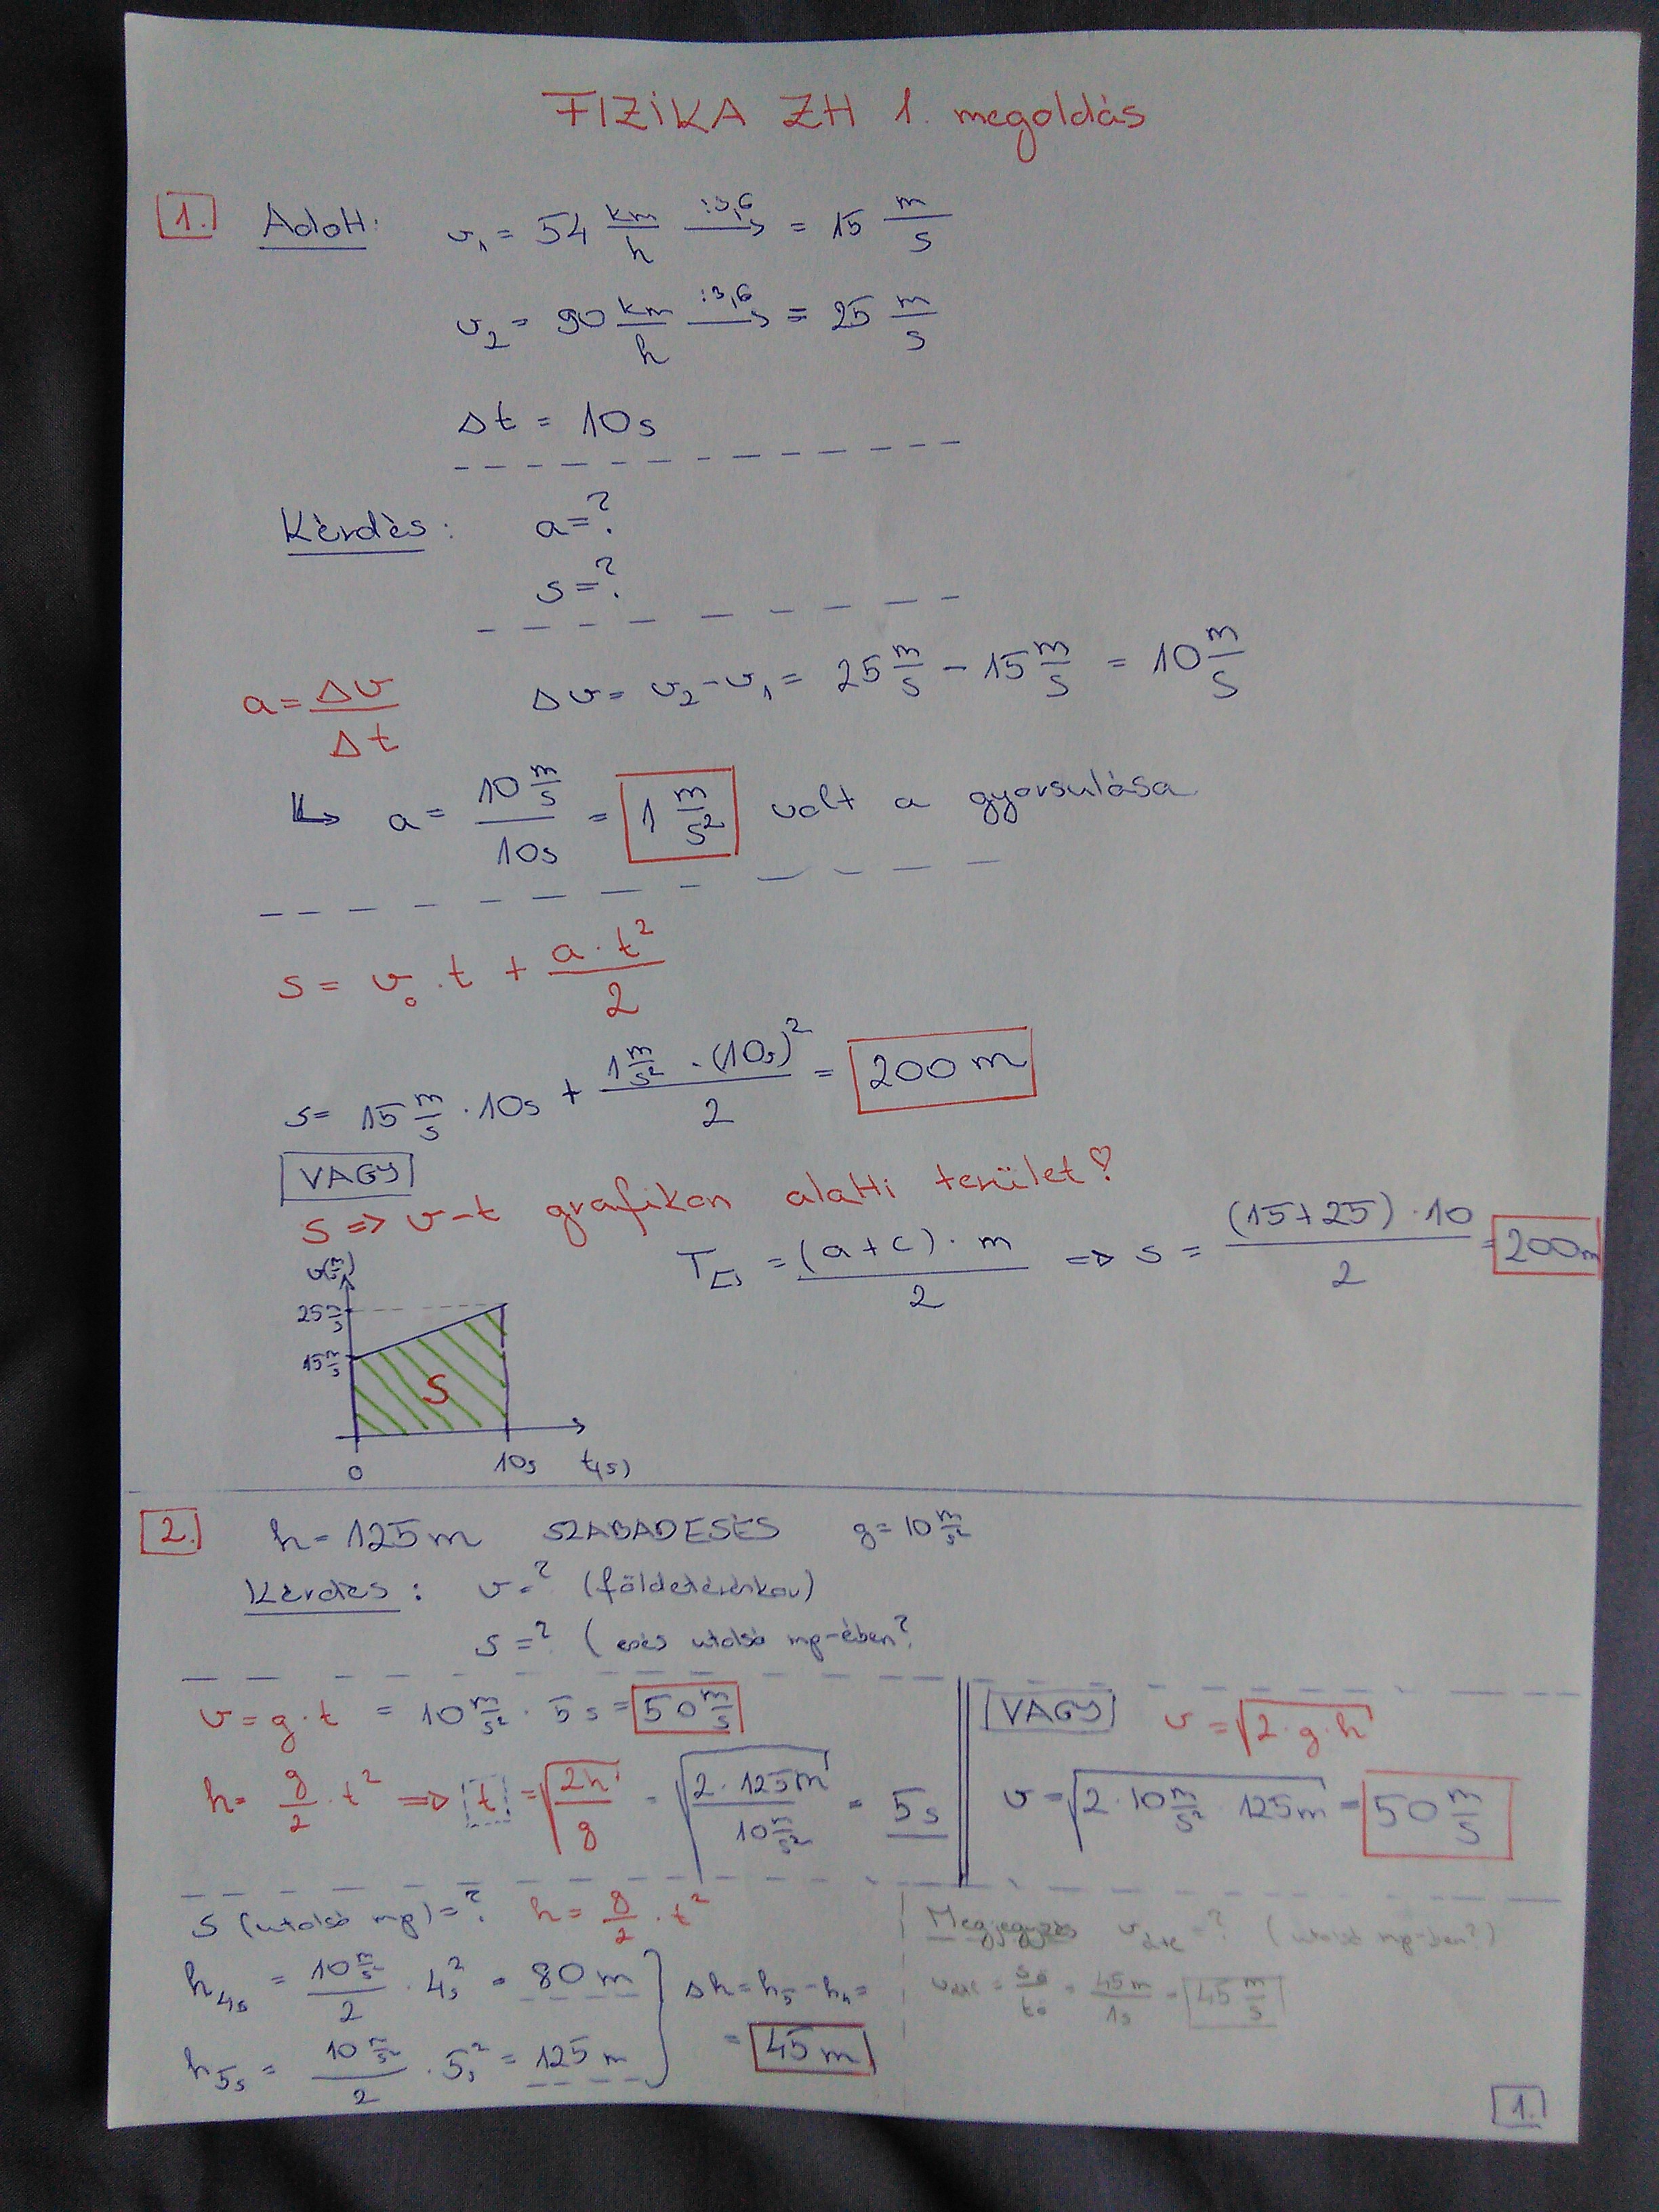 FIZIKA ZH 1. megoldás
1. Adott: v₁ = 54 km/h :3,6→ = 15 m/s
v₂ = 90 km/h :3,6→ = 25 m/s
Δt = 10s
Kérdés: a=?
s=?
a = Δv/Δt Δv = v₂-v₁ = 25 m/s - 15 m/s = 10 m/s
↳ a = 10 m/s / 10s = 1 m/s² volt a gyorsulása
s = v₀·t + a·t²/2
s = 15 m/s · 10s + 1 m/s² · (10s)²/2 = 200 m
VAGY
s => v-t grafikon alatti terület!
T = (a+c)·m/2 => s = (15+25)·10/2 = 200m
v(m/s)
25 m/s
15 m/s
S
0 10s t(s)
2. h = 125m SZABADESÉS g = 10 m/s²
Kérdés: v=? (földetéréskor)
s=? (esés utolsó mp-ében?
v = g·t = 10 m/s² · 5s = 50 m/s
h = g/2 · t² => t = √(2h/g) = √(2·125m / 10 m/s²) = 5s
VAGY v = √(2·g·h)
v = √(2·10 m/s² · 125m) = 50 m/s
s (utolsó mp) = ? h = g/2 · t²
h₄ₛ = 10 m/s² / 2 · 4s² = 80 m
h₅ₛ = 10 m/s² / 2 · 5s² = 125 m
Δh = h₅-h₄ =
= 45 m
Megjegyzés v = ? (utolsó mp-ben?)
= 45m/1s = 45 m/s
1.